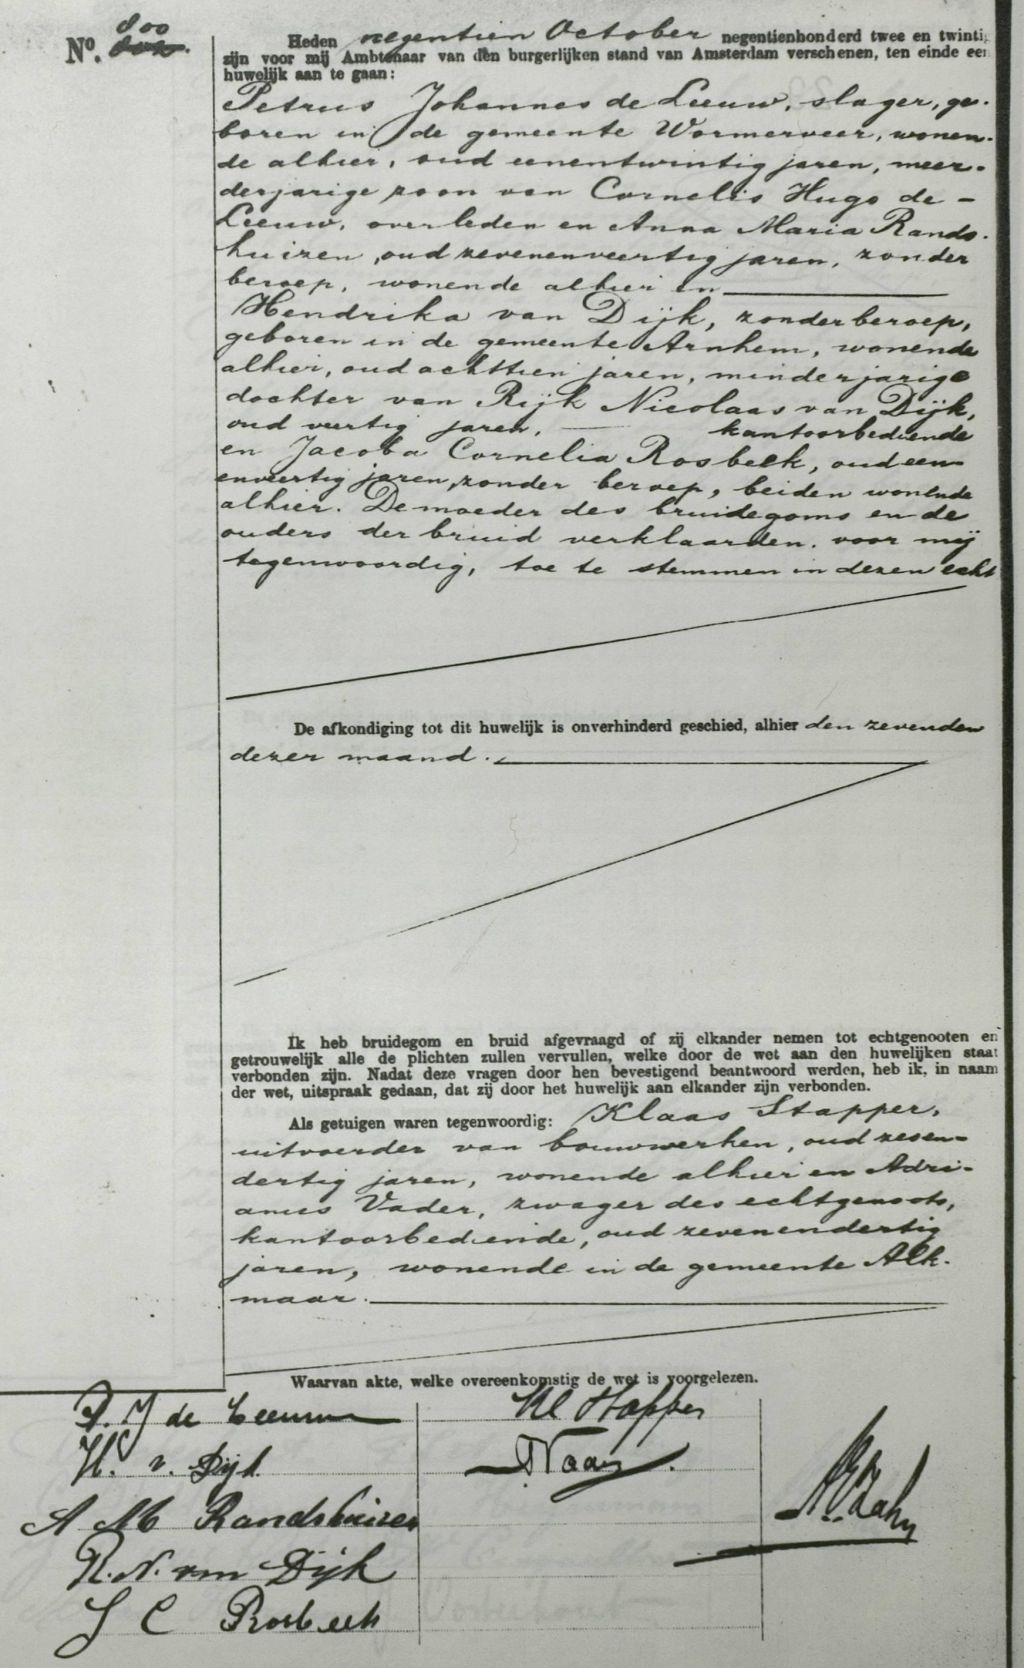 No. 800
Heden negentien October negentienhonderd twee en twintig
zijn voor mij Ambtenaar van den burgerlijken stand van Amsterdam verschenen, ten einde een
huwelijk aan te gaan:
Petrus Johannes de Leeuw, slager, ge-
boren in de gemeente Wormerveer, wonen-
de alhier, oud eenentwintig jaren, meer-
derjarige zoon van Cornelis Hugo de -
Leeuw, overleden en Anna Maria Rands-
huizen, oud zevenenveertig jaren, zonder
beroep, wonende alhier en
Hendrika van Dijk, zonder beroep,
geboren in de gemeente Arnhem, wonende
alhier, oud achttien jaren, minderjarige
dochter van Rijk Nicolaas van Dijk,
oud veertig jaren, kantoorbediende
en Jacoba Cornelia Rosbeek, oud een-
enveertig jaren, zonder beroep, beiden wonende
alhier. De moeder des bruidegoms en de
ouders der bruid verklaarden, voor mij
tegenwoordig, toe te stemmen in dezen echt
De afkondiging tot dit huwelijk is onverhinderd geschied, alhier den zevenden
dezer maand.
Ik heb bruidegom en bruid afgevraagd of zij elkander nemen tot echtgenooten en
getrouwelijk alle de plichten zullen vervullen, welke door de wet aan den huwelijken staat
verbonden zijn. Nadat deze vragen door hen bevestigend beantwoord werden, heb ik, in naam
der wet, uitspraak gedaan, dat zij door het huwelijk aan elkander zijn verbonden.
Als getuigen waren tegenwoordig: Klaas Stapper,
uitvoerder van bouwwerken, oud zesen-
dertig jaren, wonende alhier en Adri-
anus Vader, zwager des echtgenoots,
kantoorbediende, oud zevenendertig
jaren, wonende in de gemeente Alk-
maar.
Waarvan akte, welke overeenkomstig de wet is voorgelezen.
P. J de Leeuw Kl Stapper
H. v. Dijk
A M Randshuizen
R. N. van Dijk
J C Rosbeek